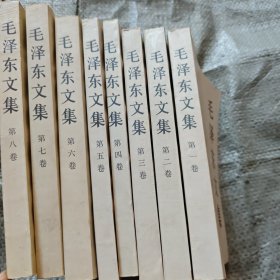 毛泽东文集
第八卷
毛泽东文集
第七卷
毛泽东文集
第六卷
毛泽东文集
第五卷
毛泽东文集
第四卷
毛泽东文集
第三卷
毛泽东文集
第二卷
毛泽东文集
第一卷